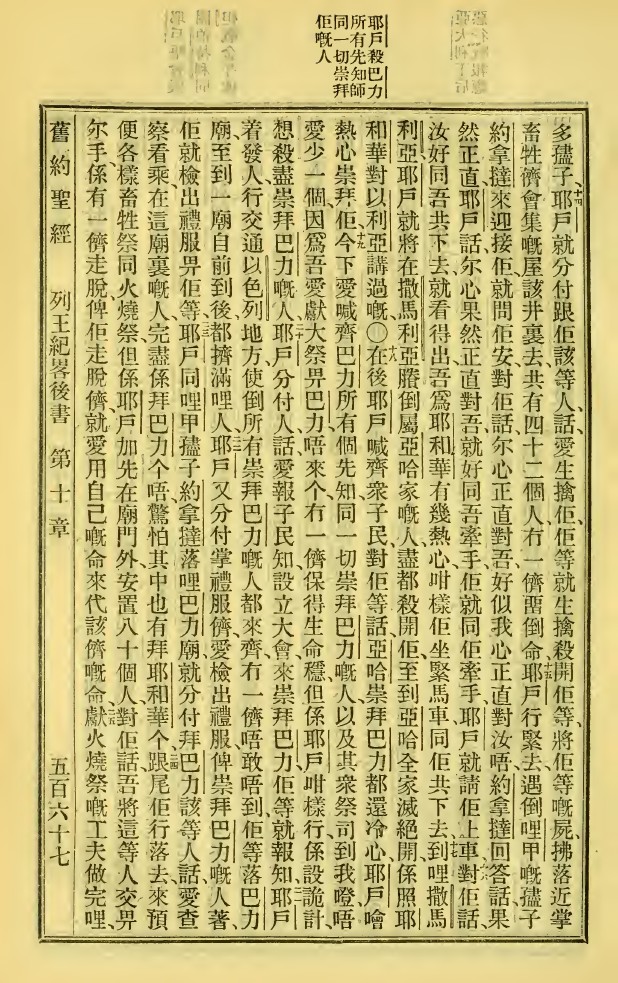 耶戶殺巴力
所有先知師
同一切崇拜
佢嘅人
多孻子、十四耶戶就分付跟佢該等人話、愛生擒佢、佢等就生擒殺開佢等、將佢等嘅屍、拂落近掌
畜牲儕會集嘅屋該井裏去、共有四十二個人、冇一儕畱倒命、十五耶戶行緊去、遇倒哩甲嘅孻子
約拿撻來迎接佢、就問佢安對佢話、尔心正直對吾、好似我心正直對汝唔、約拿撻回答話、果
然正直、耶戶話、尔心果然正直對吾、就好同吾牽手、佢就同佢牽手、耶戶就請佢上車、十六對佢話、
汝好同吾共下去、就看得出吾爲耶和華有幾熱心、咁樣佢坐緊馬車同佢共下去、十七到哩撒馬
利亞、耶戶就將在撒馬利亞賸倒屬亞哈家嘅人、盡都殺開佢、至到亞哈全家滅絕開、係照耶
和華對以利亞講過嘅〇十八在後耶戶喊齊衆子民、對佢等話、亞哈崇拜巴力都還冷心、耶戶噲
熱心崇拜佢、十九今下愛喊齊巴力所有個先知、同一切崇拜巴力嘅人、以及其衆祭司到我䠬、唔
愛少一個、因爲吾愛獻大祭畀巴力、唔來个冇一儕保得生命穩、但係耶戶咁樣行、係設詭計、
想殺盡崇拜巴力嘅人、二十耶戶分付人話、愛報子民知設立大會來崇拜巴力、佢等就報知、二一耶戶
着發人行交通以色列地方、使倒所有崇拜巴力嘅人都來齊、冇一儕唔敢唔到、佢等落巴力
廟、至到一廟自前到後、都擠滿哩人、二二耶戶又分付掌禮服儕、愛檢出禮服俾崇拜巴力嘅人著、
佢就檢出禮服畀佢等、二三耶戶同哩甲孻子約拿撻落哩巴力廟、就分付拜巴力該等人話、愛查
察看乘、在這廟裏嘅人、完盡係拜巴力个、唔驚怕其中也有拜耶和華个、二四跟尾佢行落去來預
便各樣畜牲祭同火燒祭、但係耶戶加先在廟門外安置八十個人、對佢話、吾將這等人交畀
尔手、係有一儕走脫、俾佢走脫儕、就愛用自己嘅命來代該儕嘅命、二五獻火燒祭嘅工夫做完哩、
舊約聖經 列王紀畧後書 第十章 五百六十七